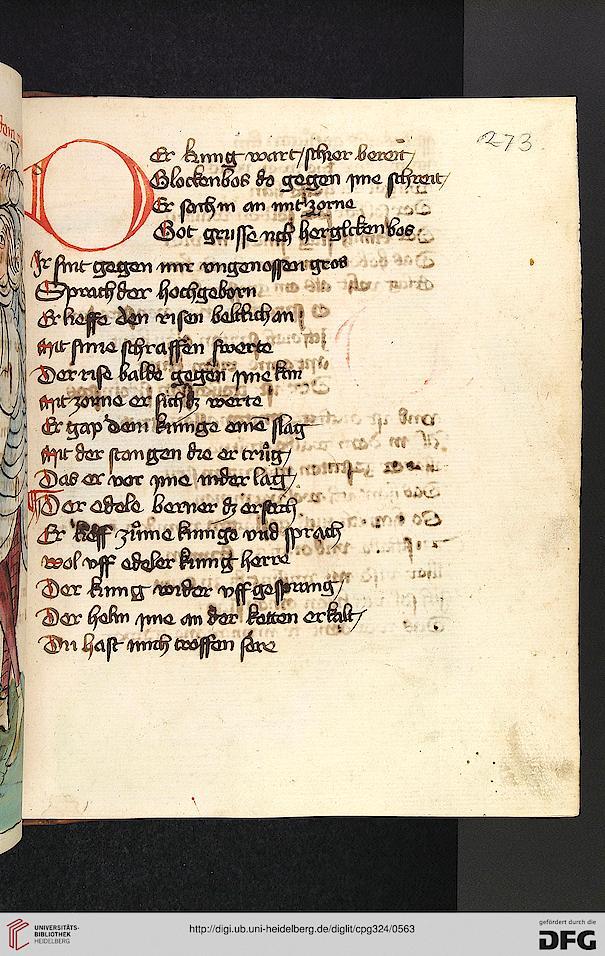 273
DEr kunig wart / schier bereit /
Glockenbos do gegen jme schreit /
Er sach in an mit zorne
Got grusse uch her glockenbos
Ir sint gegen mir ungenossen gros
Sprach der hochgeborn
Er lieffe den risen beltlich an
mit sime schraffen swerte
Der rise balde gegen jme kam
mit zorne er sich dz werte
Er gap dem kunige eine slag
mit der stangen die er trůg /
Das er vor jme nider lag /
Der edele berner dz ersach
Er lieff zů eime kunige vnd sprach
wol uff edeler kunig herre
Der kunig wider uff gesprang /
Der helm jme an der ketten erkalt /
Du hast mich troffen sere
UNIVERSITÄTS-
BIBLIOTHEK
HEIDELBERG
http://digi.ub.uni-heidelberg.de/diglit/cpg324/0563
gefördert durch die
DFG